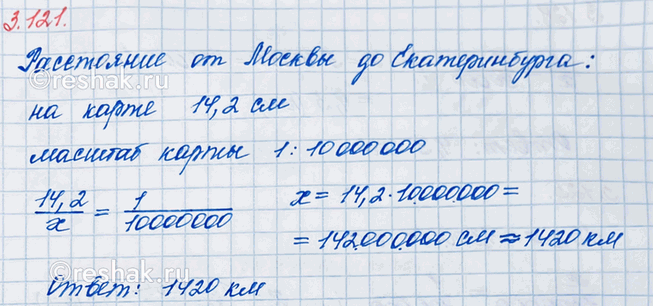 3.121.
Расстояние от Москвы до Екатеринбурга:
на карте 14,2 см
масштаб карты 1:10000000
14,2/x = 1/10000000 x = 14,2·10.000.000 =
= 142.000.000 см ≈ 1420 км
Ответ: 1420 км
reshak.ru